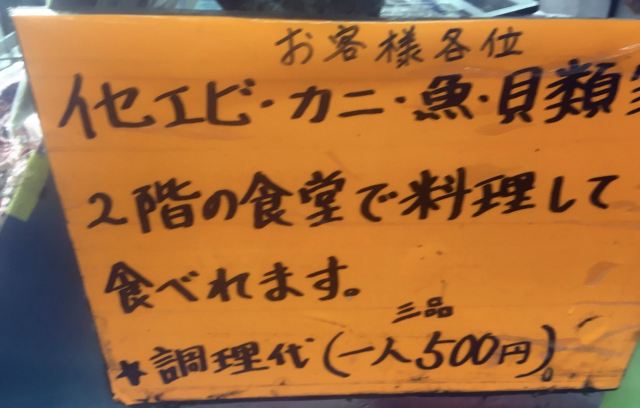 お客様各位
イセエビ・カニ・魚・貝類
2階の食堂で料理して
食べれます。
三品
★調理代(一人500円)